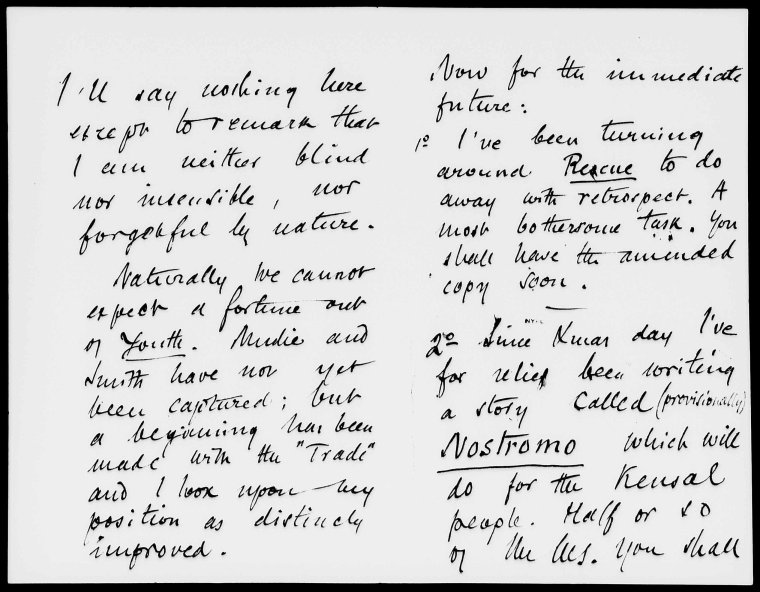 I'll say nothing here
except to remark that
I am neither blind
nor insensible, nor
forgetful by nature.
Naturally we cannot
expect a fortune out
of Youth. Mudie and
Smith have not yet
been captured; but
a beginning has been
made with the "Trade"
and I look upon my
position as distinctly
improved.
Now for the immediate
future:
1º I've been turning
around Rescue to do
away with retrospect. A
most bothersome task. You
shall have the amended
copy soon.
2º Since Xmas day I've
for relief been writing
a story called (provisionally)
Nostromo which will
do for the Kensal
people. Half or so
of the MS. you shall